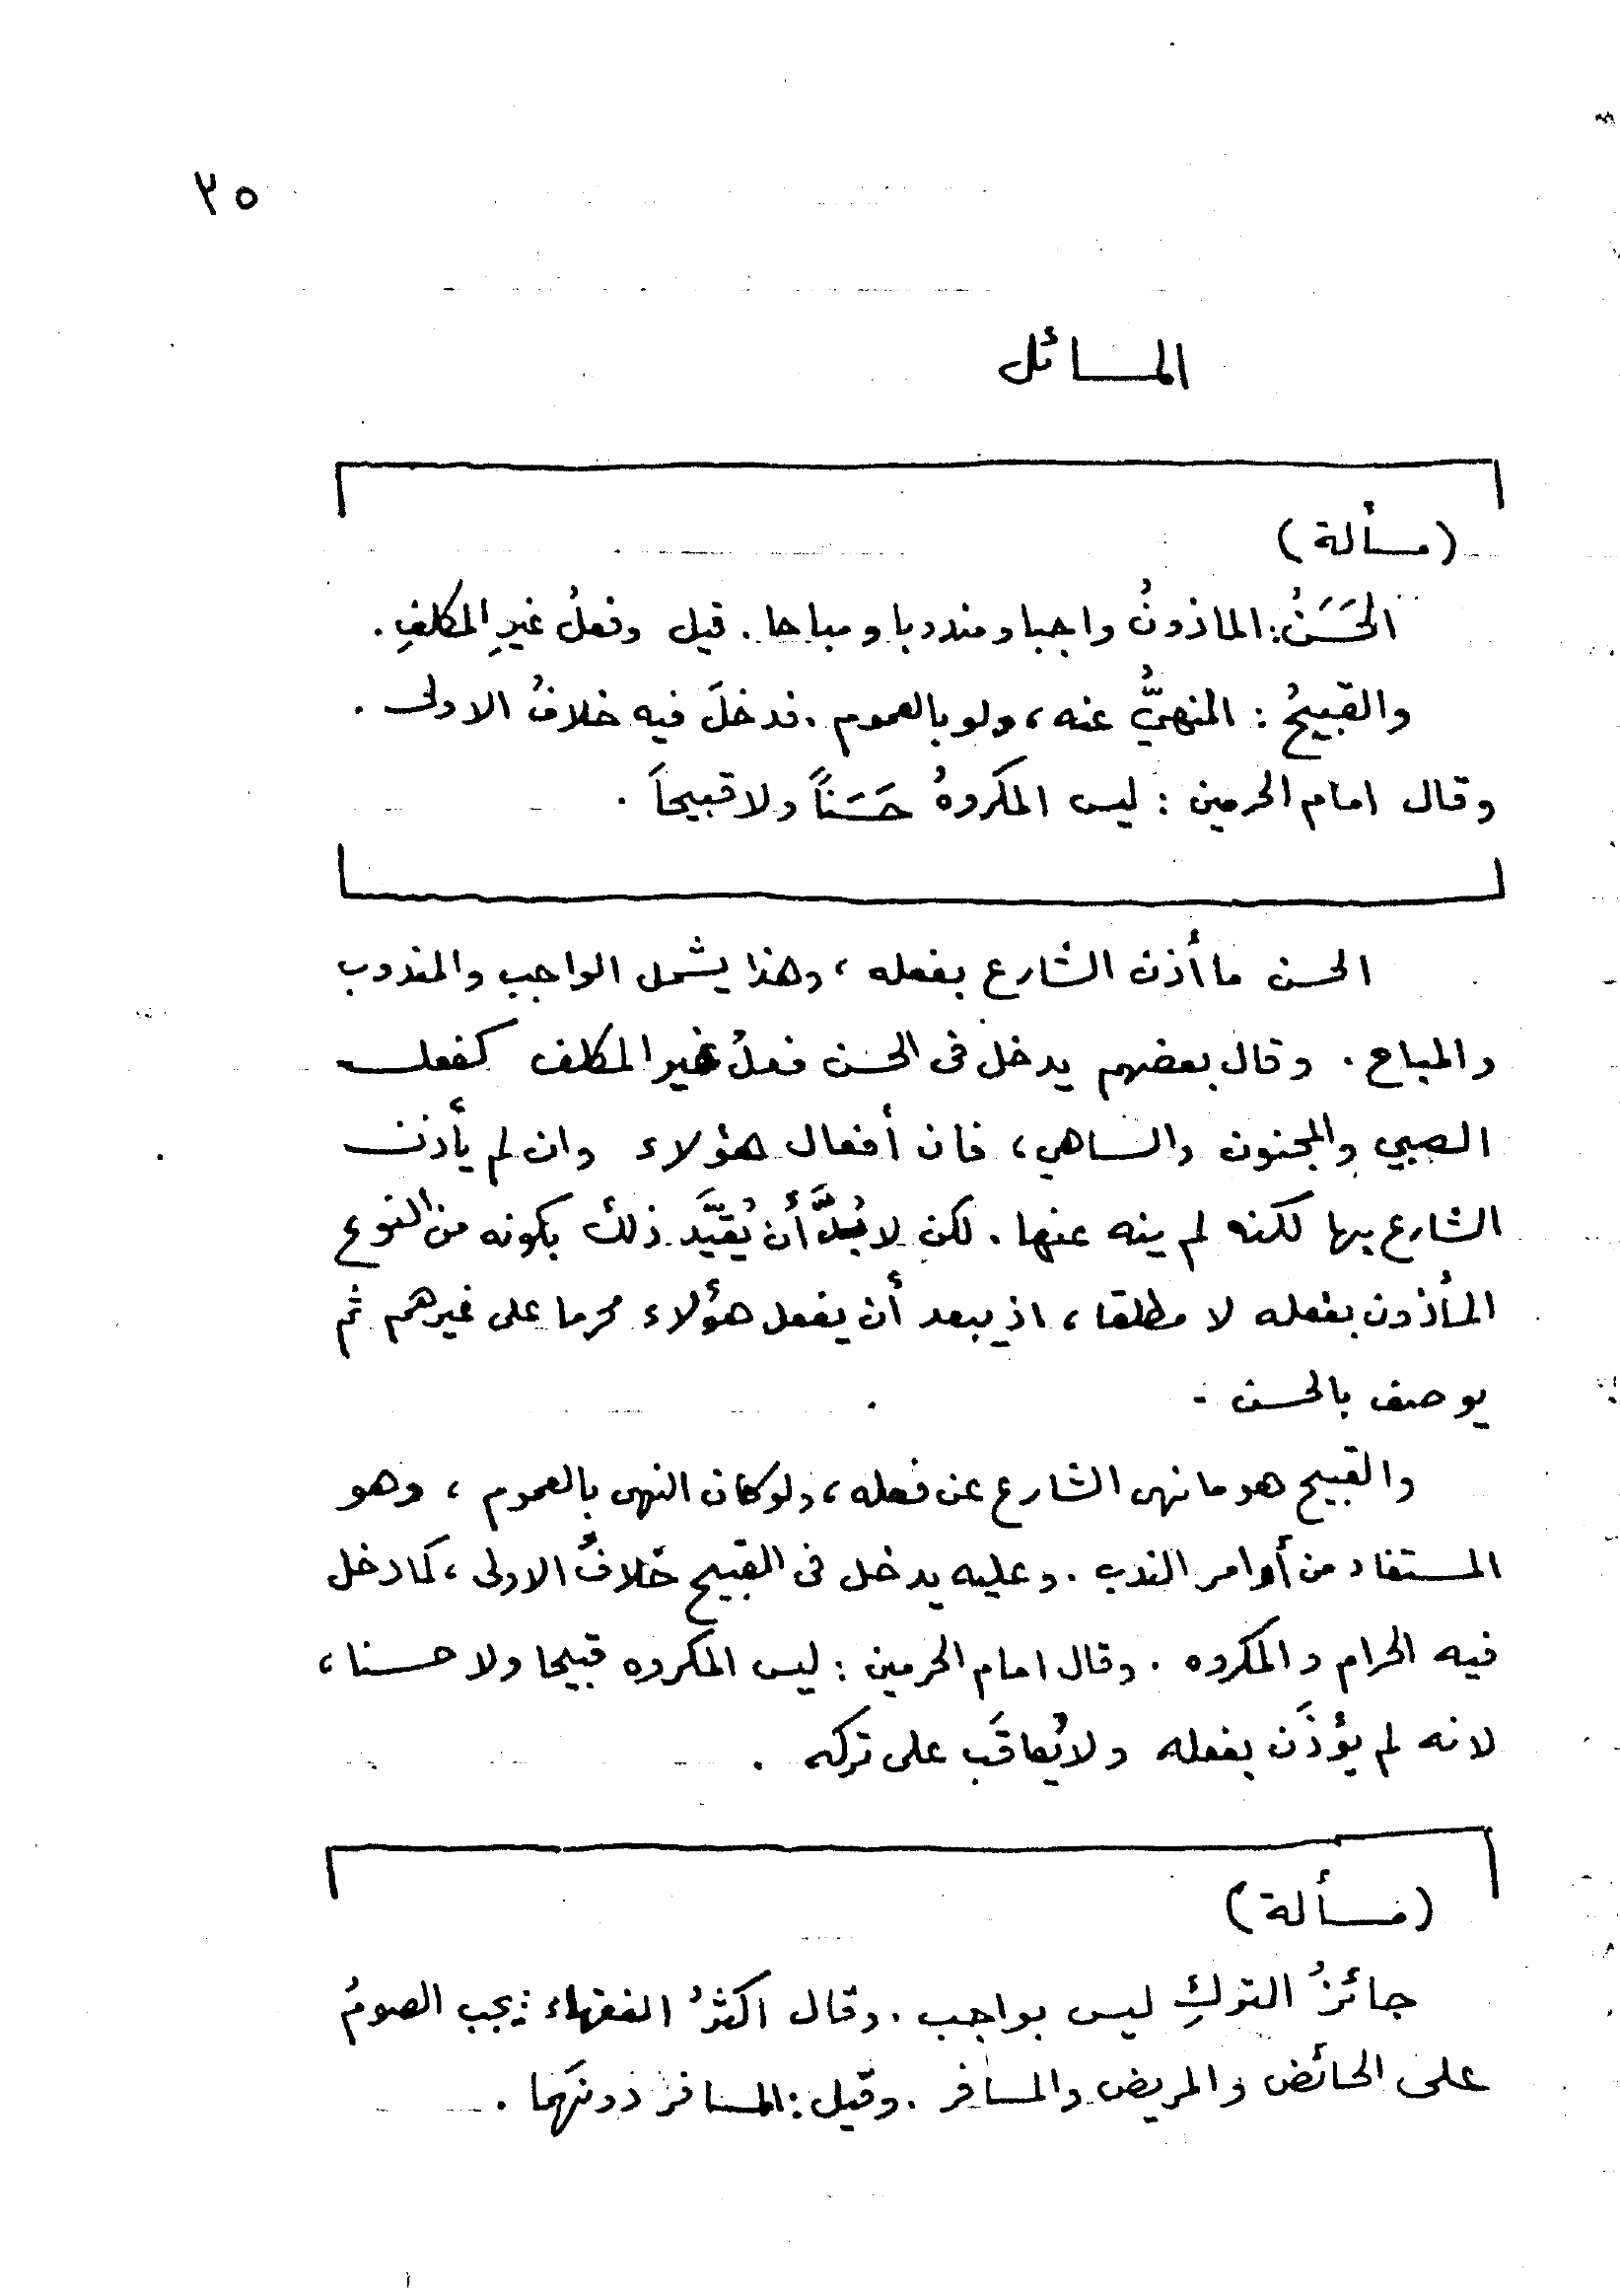 ٢٥
المسائل
(مسألة)
الحَسَنُ: الماذونُ واجبا ومندوبا ومباحا. قيل وفعلُ غيرِ المكلفِ.
والقبيحُ: المنهيُّ عنه، ولو بالعموم. فدخلَ فيه خلافُ الاولى.
وقال امام الحرمين: ليس المكروهُ حَسَناً ولا قبيحاً.
الحسن ما أذن الشارع بفعله، وهذا يشمل الواجب والمندوب
والمباح. وقال بعضهم يدخل فى الحسن فعلُ غير المكلف كفعل
الصبي والمجنون والساهي، فان أفعال هؤلاء وان لم يأذن
الشارع بها لكنه لم ينه عنها. لكن لا بُدَّ أن يُقيَّد ذلك بكونه من النوع
المأذون بفعله لا مطلقا، اذ يبعد أن يفعل هؤلاء محرما على غيرهم ثم
يوصف بالحسن.
والقبيح هو ما نهى الشارع عن فعله، ولو كان النهى بالعموم، وهو
المستفاد من أوامر الندب. وعليه يدخل فى القبيح خلافُ الاولى، كما دخل
فيه الحرام والمكروه. وقال امام الحرمين: ليس المكروه قبيحا ولا حسنا،
لانه لم يؤذَن بفعله ولا يُعاقَب على تركه.
(مسألة)
جائزُ التركِ ليس بواجب. وقال اكثرُ الفقهاء: يجب الصومُ
على الحائض والمريض والمسافر. وقيل: المسافر دونَهما.